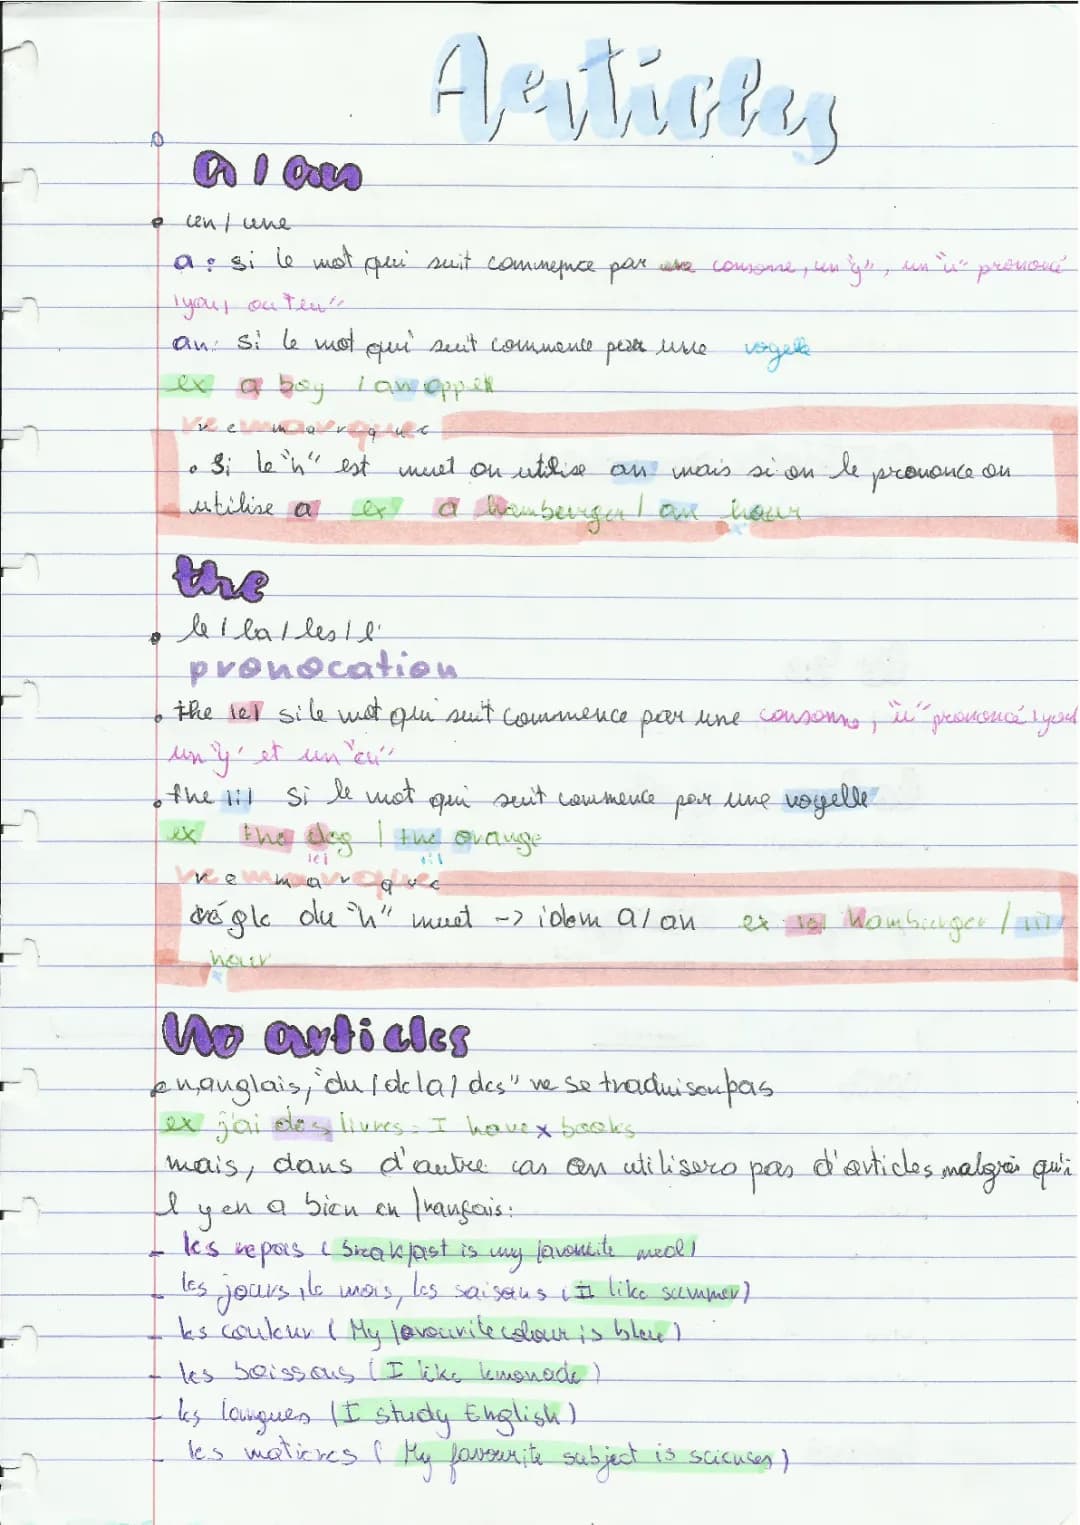 Articles
a / an
un / une
a : si le mot qui suit commence par une consonne, un "y", un "u" prononcé
/you/ ou "eu"
an : si le mot qui suit commence par une voyelle
ex a boy / an appel
remarques
. Si le "h" est muet on utilise an mais si on le prononce on
utilise a ex a hamburger / an hour
the
le / la / les / l'
pronocation
. the /e/ si le mot qui suit commence par une consonne, "u" prononcé /you/
un "y" et un "eu"
. the /i/ si le mot qui suit commence par une voyelle
ex the dog / the orange
/e/ /i/
remarque
régle du "h" muet -> idem a/an ex /e/ hamburger / /i/
hour
No articles
en anglais, "du / de la / des" ne se traduisen pas
ex j'ai des livres = I have x books
mais, dans d'autre cas on utilisera pas d'articles malgrés qu'i
l y en a bien en français :
- les repas ( breakfast is my favourite meal )
- les jours, le mois, les saisons ( I like summer )
- les couleur ( My favourite colour is bleu )
- les boissons ( I like lemonade )
- les langues ( I study English )
- les matières ( My favourite subject is sciences )